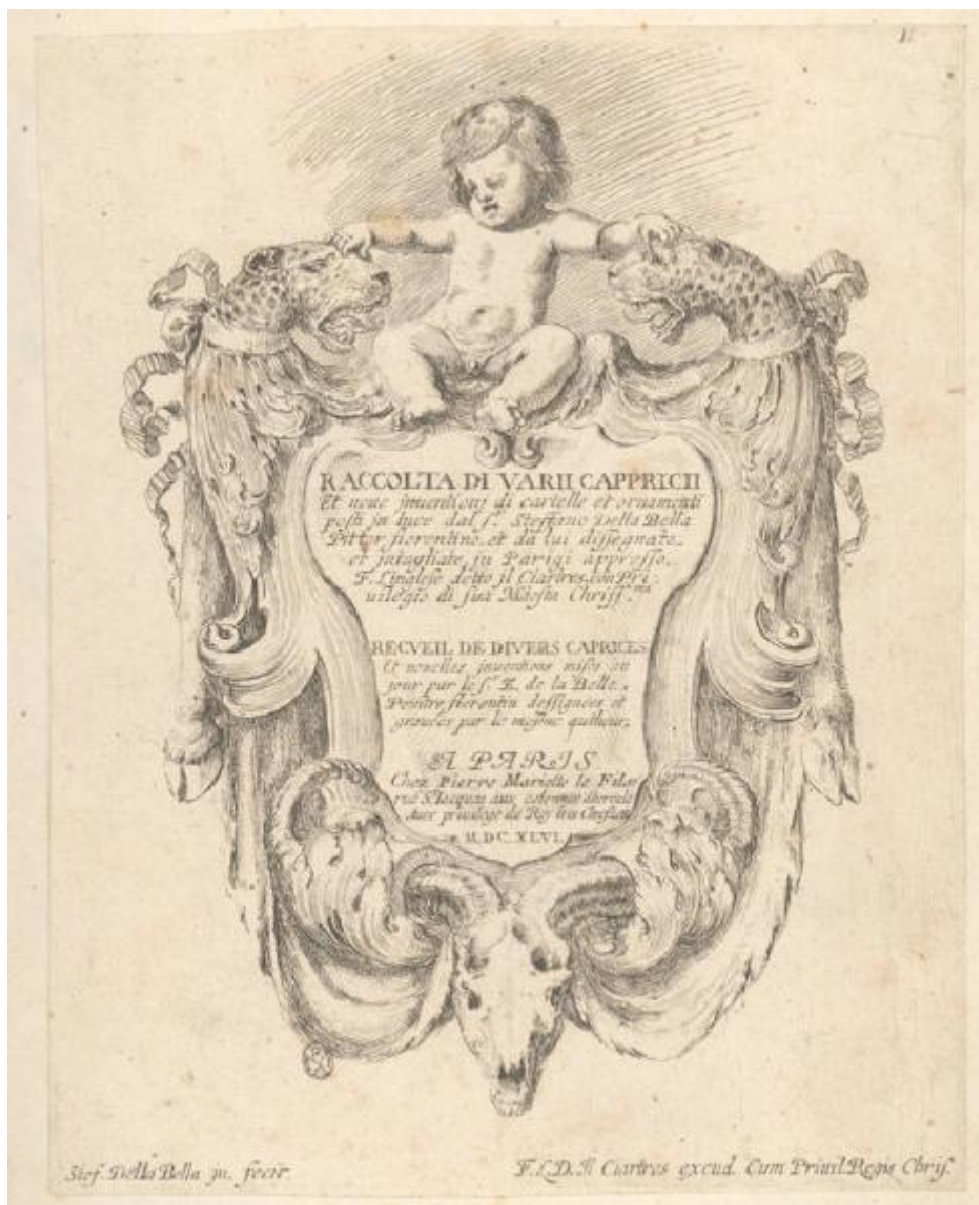 RACCOLTA DI VARII CAPPRICII
Et noue inuentionj di cartelle et ornamenti
posti in luce dal s.r Steffano Della Bella
Pittor fiorentino et da lui dissegnate
et intagliate in Parigi appresso
F. L'inglese detto il Ciartres con Pri
uilegio di sua Maesta Chriss.ma
RECVEIL DE DIVERS CAPRICES
Et nouelles inuentions mises en
jour par le s.r E. de la Belle
Peintre fiorentin dessignées et
grauées par le mesme
A PARIS
Chez Pierre Mariette le Fils
rue S. Iacques aux
Auec priuilege de Roy
M. DC. XLVI.
Stef. Della Bella in. fecit
F. L. D. Il Ciartres excud. Cum Priuil. Regis Chris.